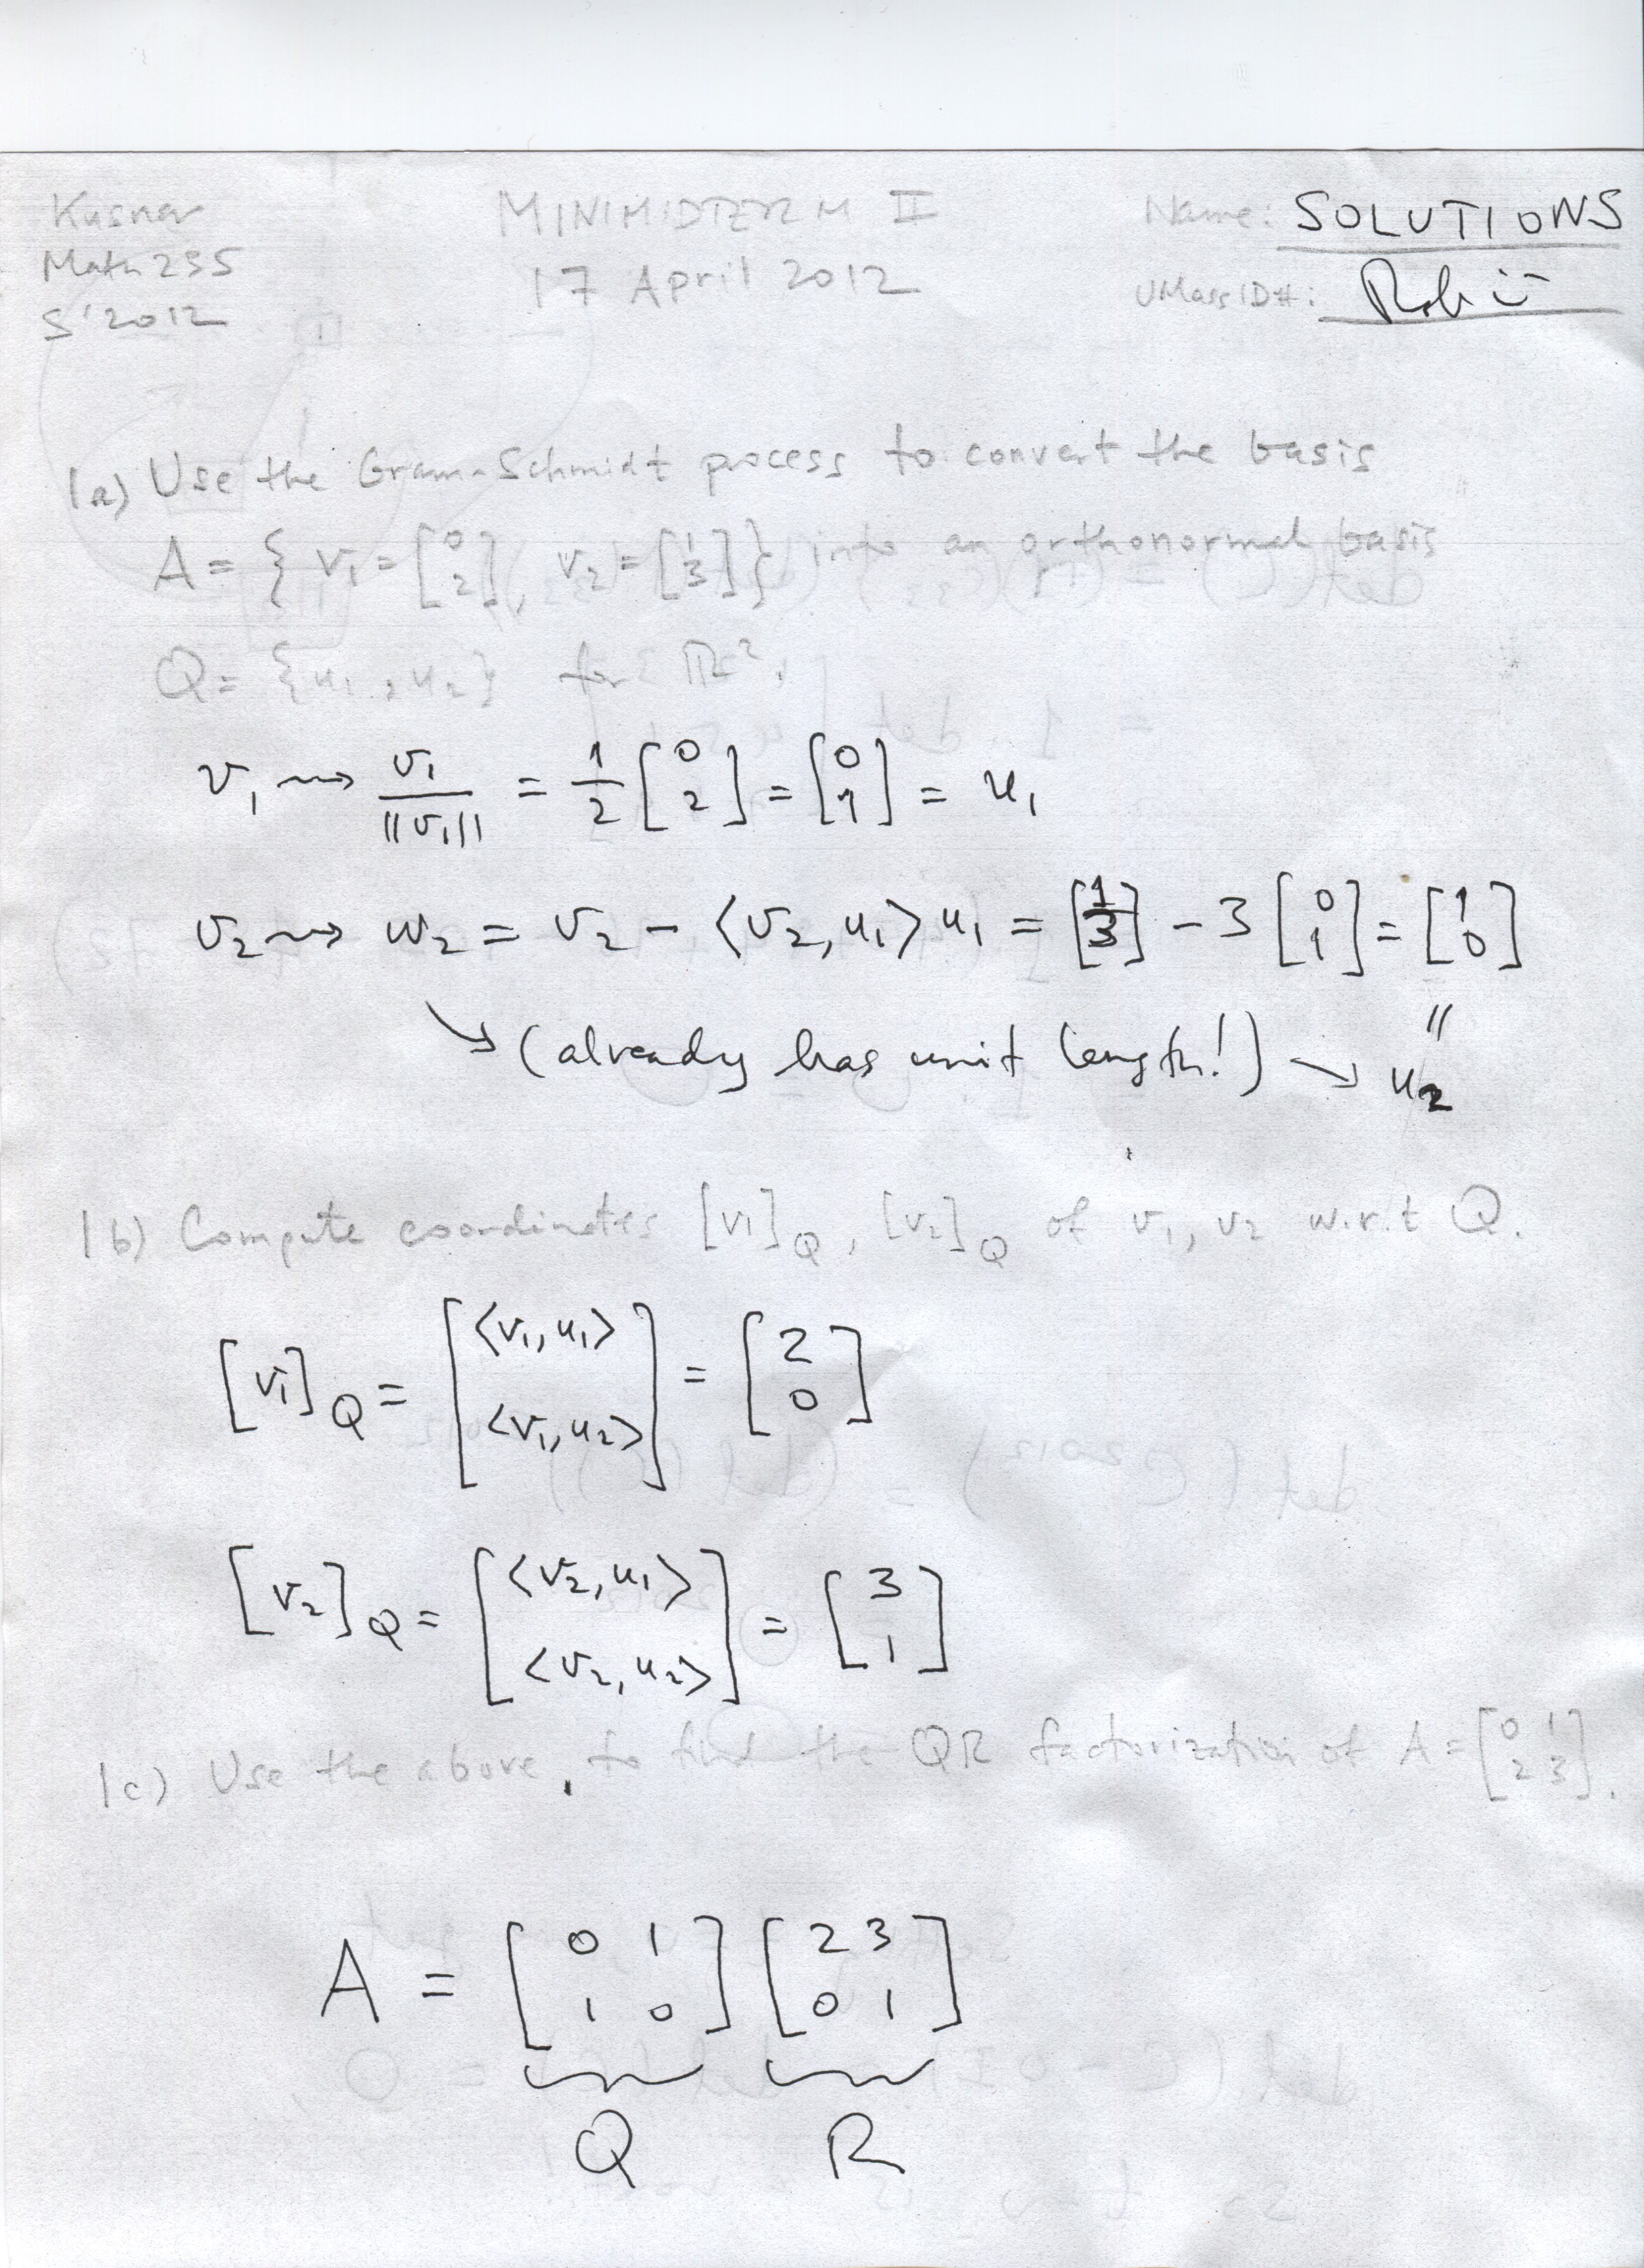 Kusner MINIMIDTERM II Name: SOLUTIONS
Math 235 17 April 2012 UMass ID#: Rob
S'2012
1a) Use the Gram-Schmidt process to convert the basis
A = { v₁ = [0 2], v₂ = [1 3] } into an orthonormal basis
Q = {u₁, u₂} for ℝ².
v₁ ⇝ v₁/||v₁|| = 1/2 [0 2] = [0 1] = u₁
v₂ ⇝ w₂ = v₂ - ⟨v₂, u₁⟩ u₁ = [1 3] - 3 [0 1] = [1 0]
↘ (already has unit length!) → u₂
1b) Compute coordinates [v₁]_Q, [v₂]_Q of v₁, v₂ w.r.t Q.
[v₁]_Q = [⟨v₁, u₁⟩ ⟨v₁, u₂⟩] = [2 0]
[v₂]_Q = [⟨v₂, u₁⟩ ⟨v₂, u₂⟩] = [3 1]
1c) Use the above, to find the QR factorization of A = [0 1 2 3].
A = [0 1 1 0] [2 3 0 1]
Q R